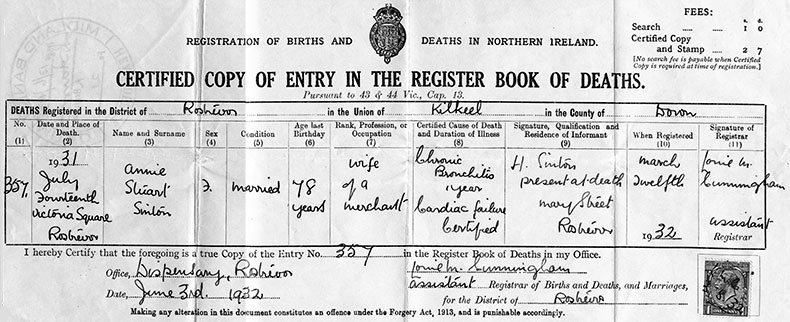 FEES:
s. d.
Search ..... ..... 1 0
Certified Copy
and Stamp ..... 2 7
[No search fee is payable when Certified
Copy is required at time of registration.]
REGISTRATION OF BIRTHS AND DEATHS IN NORTHERN IRELAND.
CERTIFIED COPY OF ENTRY IN THE REGISTER BOOK OF DEATHS.
Pursuant to 43 & 44 Vic., Cap. 13.
DEATHS Registered in the District of Rostrevor in the Union of Kilkeel in the County of Down
No. (1)
Date and Place of Death. (2)
Name and Surname (3)
Sex (4)
Condition (5)
Age last Birthday (6)
Rank, Profession, or Occupation (7)
Certified Cause of Death and Duration of Illness (8)
Signature, Qualification and Residence of Informant (9)
When Registered (10)
Signature of Registrar (11)
357.
1931
July
Fourteenth
Victoria Square
Rostrevor
Annie
Stuart
Sinton
F.
married
78
years
wife
of a
merchant
Chronic
Bronchitis
1 year
Cardiac failure
Certified
H. Sinton
present at death
Mary Street
Rostrevor
March
Twelfth
1932
M. Cunningham
assistant
Registrar
I hereby Certify that the foregoing is a true Copy of the Entry No. 357 in the Register Book of Deaths in my Office.
Office, Dispensary, Rostrevor
M. Cunningham
Date, June 3rd. 1932
assistant Registrar of Births and Deaths, and Marriages,
for the District of Rostrevor
Making any alteration in this document constitutes an offence under the Forgery Act, 1913, and is punishable accordingly.